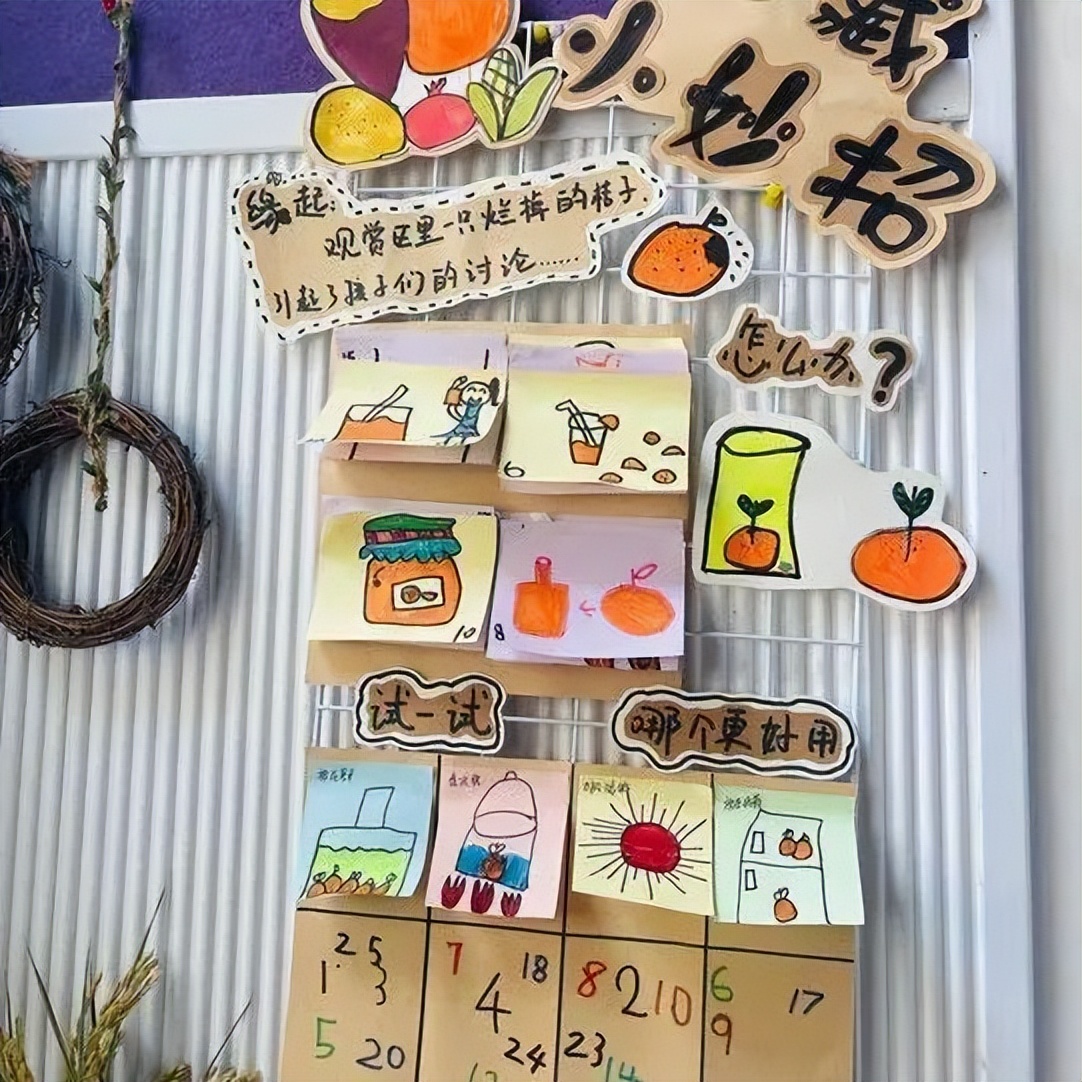 减
妙招
缘起:
观赏区里一只烂掉的桔子.
引起了孩子们的讨论......
怎么办?
6
10
8
试一试
哪个更好用
2 5 7 18 8 2 10 6 17
1 3 4 9
3
5 20 24 23 14